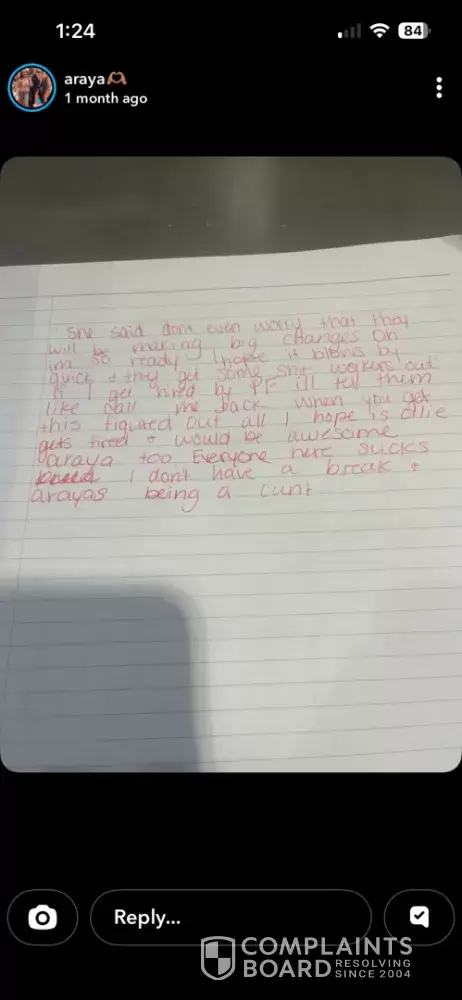 1:24
84
araya
1 month ago
She said dont even worry that they
will be making big changes Oh
im so ready I hope it blows by
quick & they get some shit workers out
If I get hired by PF ill tell them
like call me back when you get
this figured out all I hope is ollie
gets fired & would be awesome
araya too Everyone here sucks
I dont have a break &
arayas being a cunt
Reply...
COMPLAINTS
BOARD RESOLVING
SINCE 2004